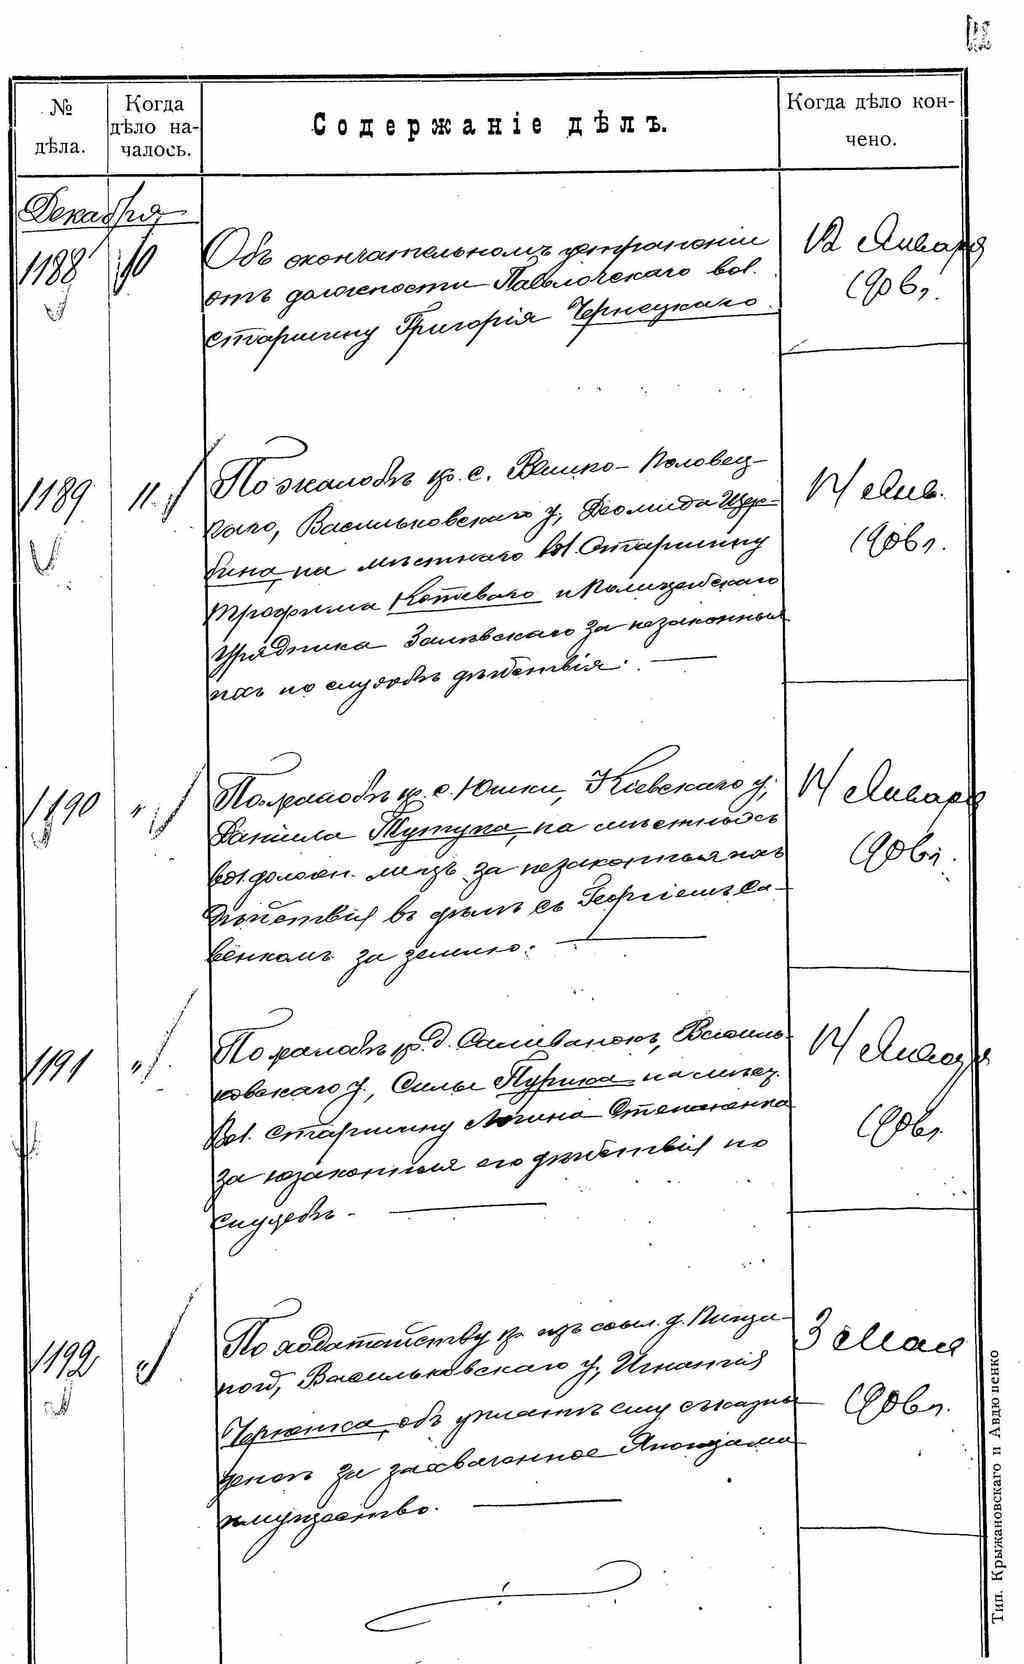 № дѣла.
Когда дѣло началось.
Содержаніе дѣлъ.
Когда дѣло кончено.
Декабря
1188 10
Объ окончательномъ устраненіи
отъ должности Паволочскаго вол.
старшину Григорія Чернецкаго.
12 Января
1906 г.
1189 11
По жалобѣ кр. с. Велико-Половец-
каго, Васильковскаго у, Діомида Щер-
бина, на мѣстнаго вол. Старшину
Трофима Котеваго и Полицейскаго
Урядника Залѣвскаго за незаконныя
ихъ по службѣ дѣйствія.
14 Янв.
1906 г.
1190 "
По жалобѣ кр. с. Юшки, Кіевскаго у,
Даніила Тутупа, на мѣстныхъ
вол. должн. лицъ за незаконныя ихъ
дѣйствія въ дѣлѣ съ Георгіемъ Са-
венкомъ за землю.
14 Января
1906 г.
1191 "
По жалобѣ кр. д. Саливанокъ, Василь-
ковскаго у, Силы Пурика на мѣст.
Вол. старшину Логина Степаненка
за незаконныя его дѣйствія по
службѣ.
14 Января
1906 г.
1192 "
По ходатайству кр. изъ ссыл. д.
Васильковскаго у, Игнатія
Черныша, объ уплатѣ ему съ казны
денегъ за захваченное Японцами
имущество.
3 Мая
1906 г.
Тип. Крыжановскаго и Авдюшенко